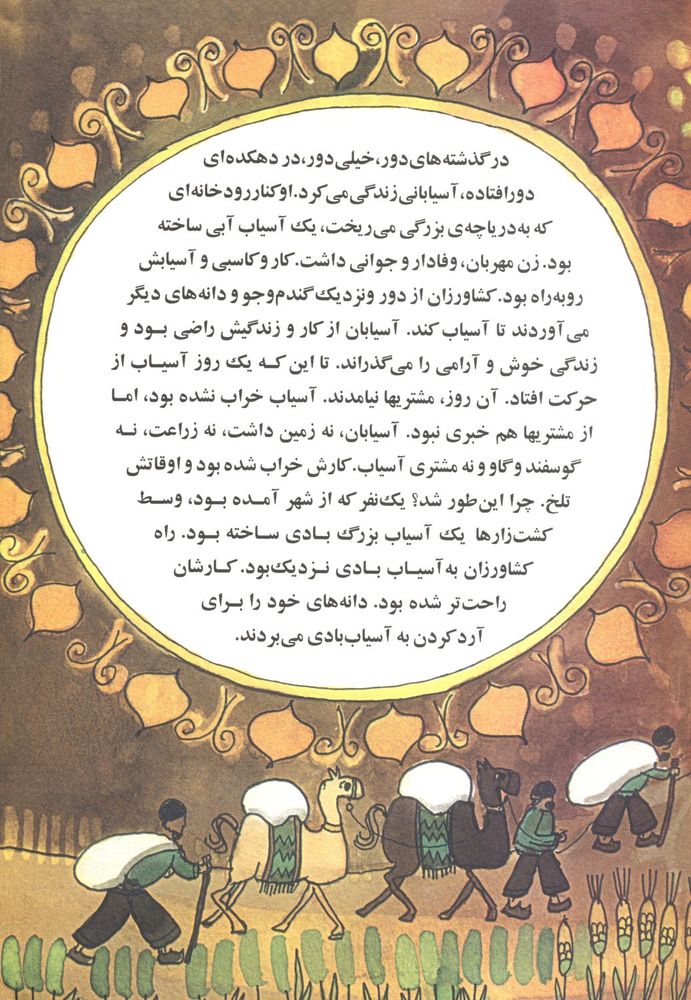 در گذشته‌های دور، خیلی دور، در دهکده‌ای
دورافتاده، آسیابانی زندگی می‌کرد. او کنار رودخانه‌ای
که به دریاچه‌ی بزرگی می‌ریخت، یک آسیاب آبی ساخته
بود. زن مهربان، وفادار و جوانی داشت. کار و کاسبی و آسیابش
روبه‌راه بود. کشاورزان از دور و نزدیک گندم و جو و دانه‌های دیگر
می‌آوردند تا آسیاب کند. آسیابان از کار و زندگیش راضی بود و
زندگی خوش و آرامی را می‌گذراند. تا این که یک روز آسیاب از
حرکت افتاد. آن روز، مشتریها نیامدند. آسیاب خراب نشده بود، اما
از مشتریها هم خبری نبود. آسیابان، نه زمین داشت، نه زراعت، نه
گوسفند و گاو و نه مشتری آسیاب. کارش خراب شده بود و اوقاتش
تلخ. چرا این‌طور شد؟ یک‌نفر که از شهر آمده بود، وسط
کشت‌زارها یک آسیاب بزرگ بادی ساخته بود. راه
کشاورزان به آسیاب بادی نزدیک بود. کارشان
راحت‌تر شده بود. دانه‌های خود را برای
آرد کردن به آسیاب‌بادی می‌بردند.